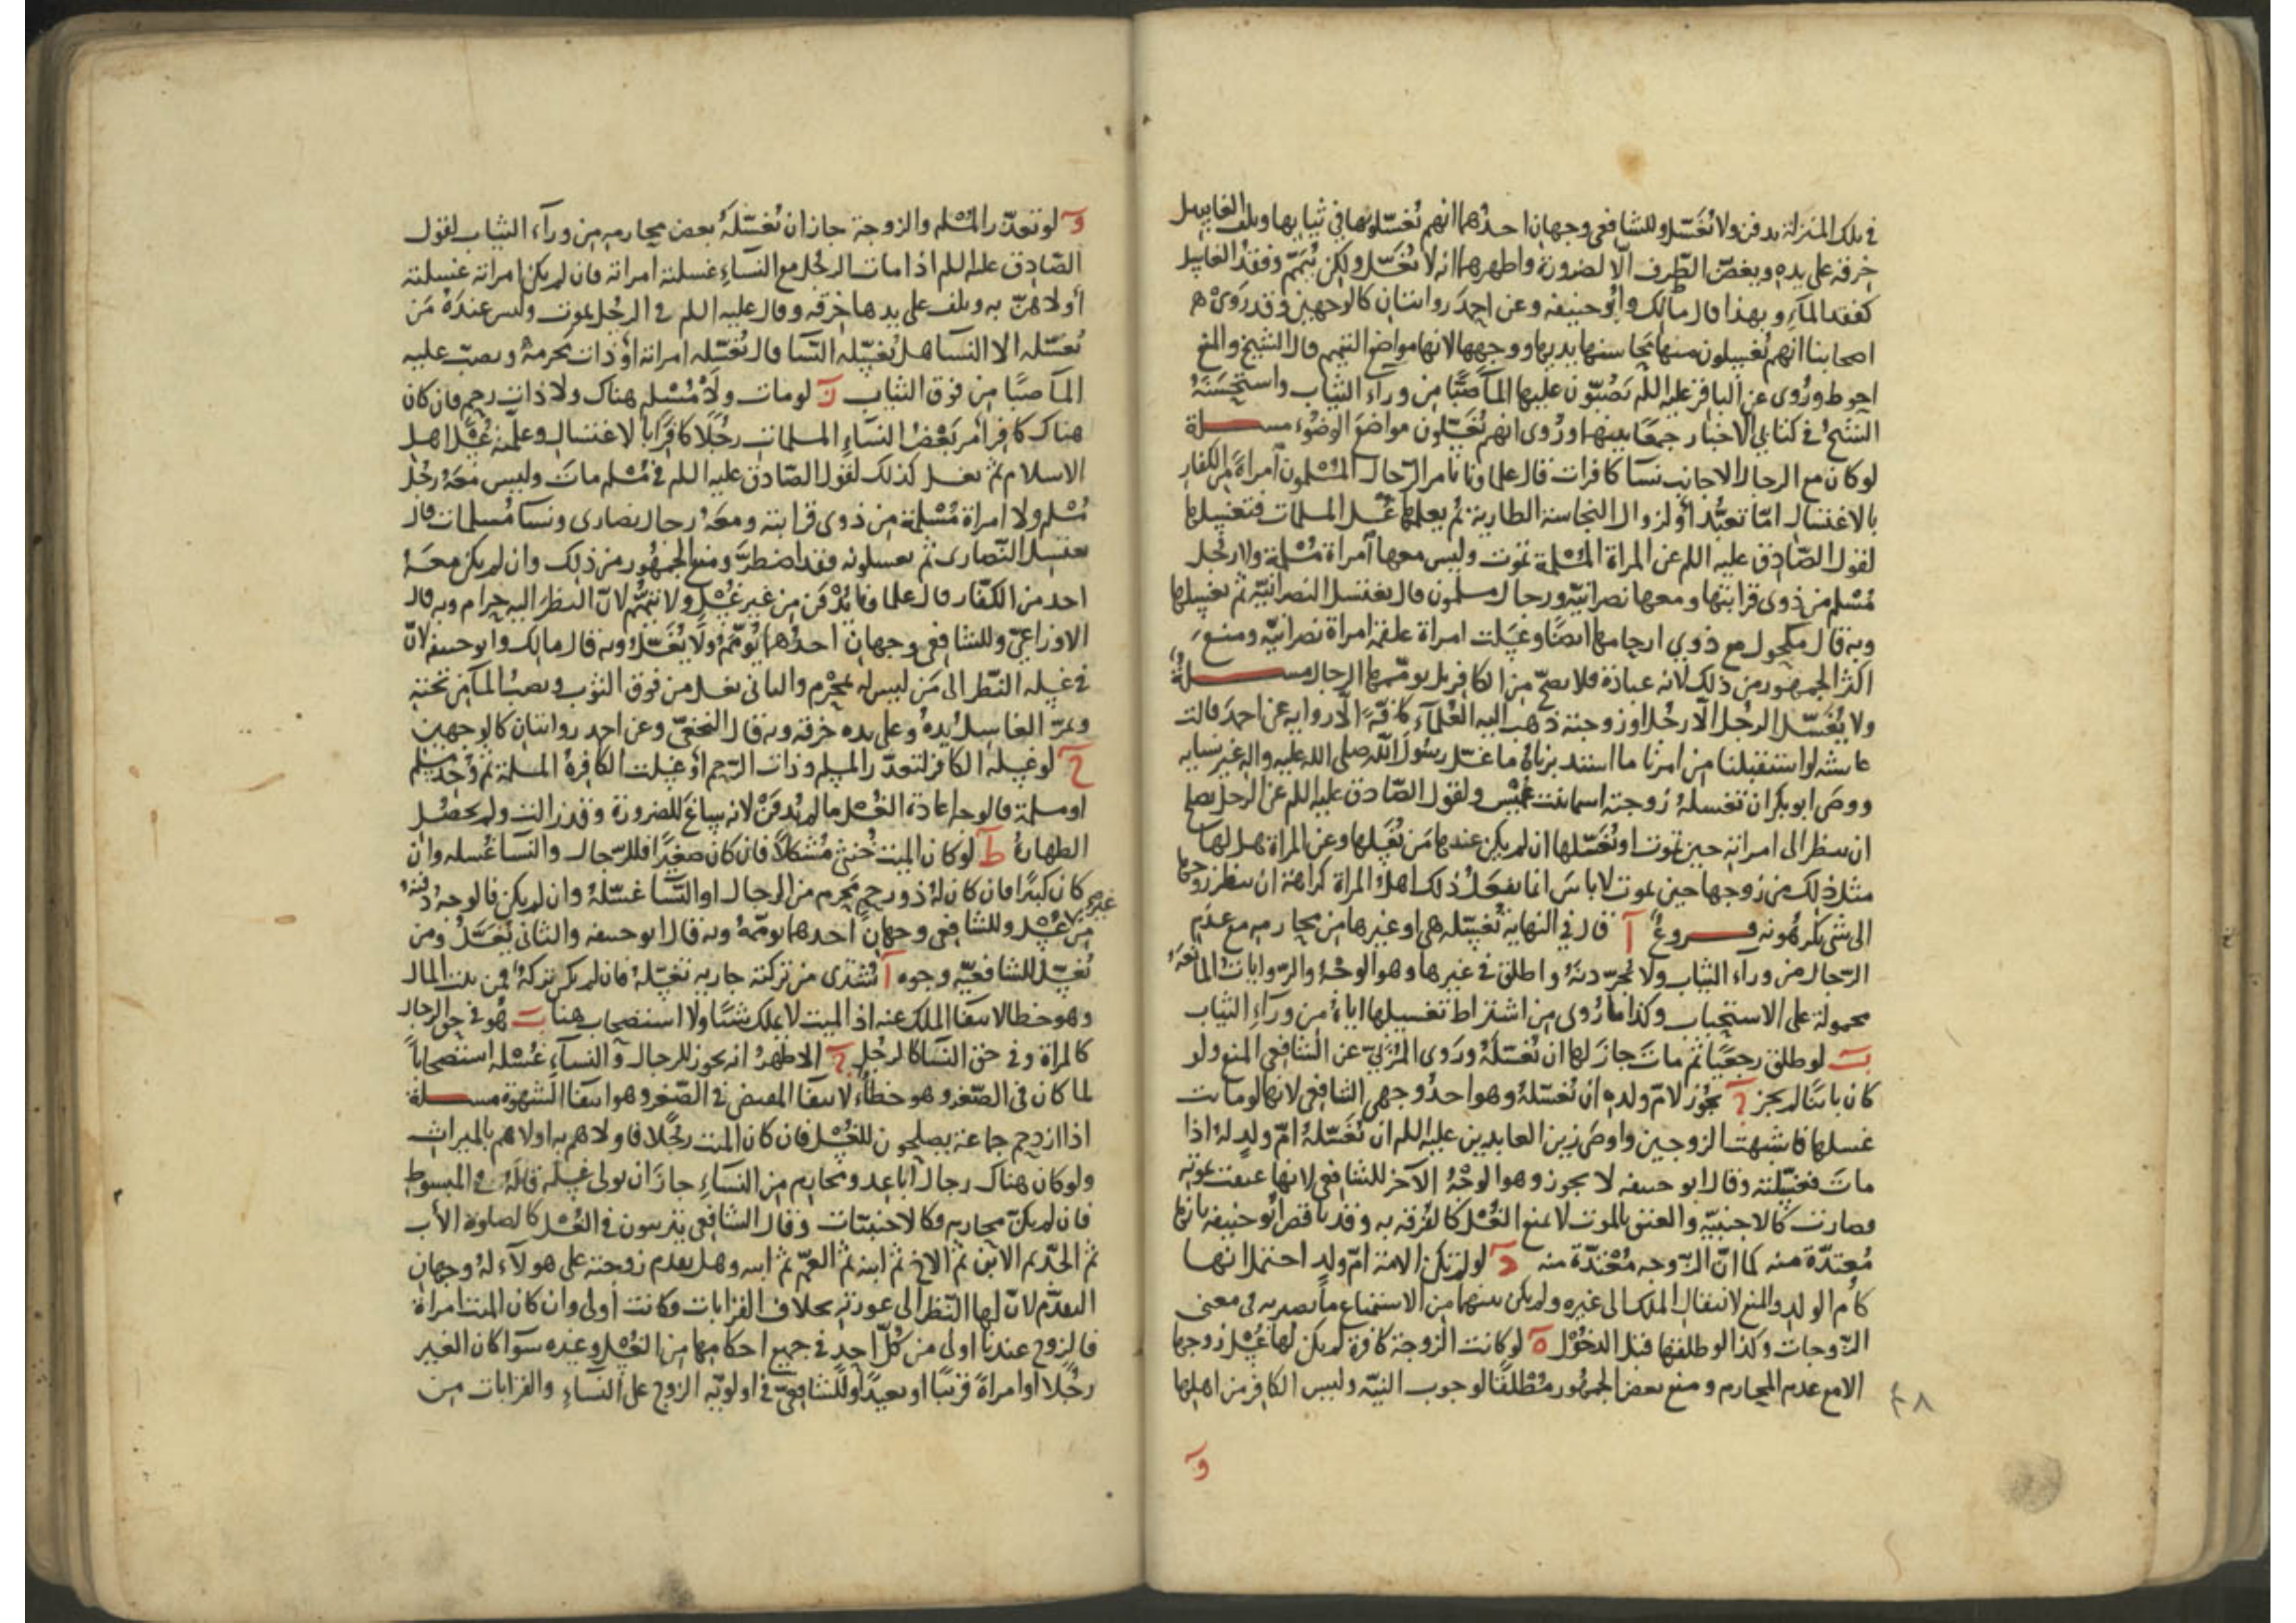 في تلك المنزلة يدفن ولا تغسل وللشافعي وجهان احدهما انهم يغسلونها في ثيابها ويلف الغاسل
خرقة على يده ويغض الطرف الا لضرورة واظهرهما انه لا تغسل ولكن تيمم وفقد الغاسل
كفقد الماء وبهذا قال مالك وابو حنيفه وعن احمد روايتان كالوجهين وقد روى
اصحابنا انهم يغسلون منها محاسنها يديها ووجهها لانها مواضع التيمم قال الشيخ والمنع
احوط وروى عن الباقر عليه اللم يصبون عليها الما صبًا من ورآء الثياب واستحسنه
الشيخ في كتابي الاخبار جمعا بينهما وروى انهم يغسلون مواضع الوضوء مسـلة
لو كان مع الرجال الاجانب نسا كافرات قال علماونا يامر الرجال المسلمون امراة من الكفار
بالاغتسال امّا تعبدا او لزوال النجاسة الطارية ثم يعلمها غسل المسلمات فتغسلها
لقول الصادق عليه اللم عن المراة المسلمة تموت وليس معها امراة مسلمة ولا رجل
مسلم من ذوى قرابتها ومعها نصرانية ورجال مسلمون قال تغتسل النصرانية ثم تغسلها
وبه قال مكحول مع ذوي ارحامها ايضا وغسلت امراة علقمة امراة نصرانية ومنع
اكثر الجمهور من ذلك لانه عبادة فلا يصح من الكافر بل يومّمها الرجال مسـلة
ولا يغسل الرجل الا رجل او زوجته ذهب اليه العلماء كافة الا رواية عن احمد قالت
عايشه لو استقبلنا من امرنا ما استدبرناه ما غسل رسول الله صلى الله عليه واله غير نسايه
ووصى ابو بكر ان تغسله زوجته اسما بنت عميس ولقول الصادق عليه اللم عن الرجل يصلح
ان ينظر الى امراته حين تموت او يغسلها ان لم يكن عندها من يغسلها وعن المراة هل لها
مثل ذلك من زوجها حين يموت لا باس انما يفعل ذلك اهل المراة كراهة ان ينظر زوجها
الى شى يكرهونه فـروع آ قال في النهاية تغسله هى او غيرها من محارمه مع عدم
الرجال من ورآء الثياب ولا تجرّدنه واطلق في غيرها وهو الوجه والروايات المانعة
محمولة على الاستحباب وكذا ما روى من اشتراط تغسيلها اياه من ورآء الثياب
ب لو طلق رجعيا ثم مات جاز لها ان تغسله وروى المزني عن الشافعي المنع ولو
كان باينا لم يجز ج يجوز لام ولده ان تغسله وهو احد وجهي الشافعي لانها لو ماتت
غسلها فاشبهت الزوجين واوصى زين العابدين عليه اللم ان تغسله امّ ولد له اذا
مات فغسلته وقال ابو حنيفه لا يجوز وهو الوجه الآخر للشافعي لانها عتقت بموته
وصارت كالاجنبية والعتق بالموت لا يمنع الغسل كالفرقة به وقد ناقض ابو حنيفه بانها
معتدّة منه كما انّ الزوجه معتدّة منه د لو لم تكن الامة امّ ولد احتمل انها
كام الولد والمنع لانتقال الملك الى غيره ولم يكن بينهما من الاستمتاع ما تصير به في معنى
الزوجات وكذا لو طلقها قبل الدخول ه لو كانت الزوجة كافرة لم يكن لها غسل زوجها
الا مع عدم المحارم ومنع بعض الجمهور مطلقا لوجوب النية وليس الكافر من اهلها
و
و لو تعذر المسلم والزوجة جاز ان تغسله بعض محارمه من ورآء الثياب لقول
الصادق عليه اللم اذا مات الرجل مع النساء غسلته امراته فان لم يكن امراته غسلته
أولاهنّ به ويلف على يدها خرقه وقال عليه اللم في الرجل يموت وليس عنده من
يغسله الا النسا هل يغسله النسا قال تغسله امراته او ذات محرمه ويصب عليه
الما صبًا من فوق الثياب ز لو مات ولا مسلم هناك ولا ذات رحم فان كان
هناك كافر امر بعض النساء المسلمات رجلًا كافرًا بالاغتسال وعلّمنه غسل اهل
الاسلام ثم يغسل كذلك لقول الصادق عليه اللم في مسلم مات وليس معه رجل
مسلم ولا امراة مسلمة من ذوى قرابته ومعه رجال نصارى ونسا مسلمات قال
يغتسل النصارى ثم يغسلونه فقد اضطرّ ومنع الجمهور من ذلك وان لم يكن معه
احد من الكفار قال علماونا يدفن من غير غسل ولا تيمم لان النظر اليه حرام وبه قال
الاوزاعيّ وللشافعي وجهان احدهما يومّم ولا يغسل وبه قال مالك وابو حنيفه لانّ
في غسله النظر الى من ليس له بمحرم والثاني يغسل من فوق الثوب ويصبّ الما من تحته
ويمرّ الغاسل يده وعلى يده خرقه وبه قال النخعيّ وعن احمد روايتان كالوجهين
ح لو غسله الكافر لتعذر المسلم وذات الرحم او غسلت الكافرة المسلمة ثم وجد مسلم
او مسلمة فالوجه اعادة الغسل ما لم يدفن لانه ساغ للضرورة وقد زالت ولم يحصل
الطهارة ط لو كان الميت خنثى مشكلًا فان كان صغيرًا فللرجال والنسا غسله وان
كان كبيرًا فان كان له ذو رحم محرم من الرجال او النسا غسّله وان لم يكن فالوجه دفنه
من غير غسل وللشافعي وجهان احدهما يومّم وبه قال ابو حنيفه والثانى يغسل ومن
يغسّل للشافعيّه وجوه آ تشترى من تركته جاريه تغسله فان لم يكن تركة فمن بيت المال
وهو خطا لانتفا الملك عنه اذ الميت لا يملك شيئا ولا استصحاب هنا ب هو في حق الرجال
كالمراة وفي حق النسا كالرجل ج الاظهر انه يجوز للرجال والنساء غسله استصحاباً
لما كان في الصغر وهو خطأ لانتفا المقتضى في الصغر وهو انتفا الشهوة مسـلة
اذا ازدحم جماعة يصلحون للغسل فان كان الميت رجلًا فاولاهم به اولاهم بالميراث
ولو كان هناك رجال اباعد ومحارم من النساء جاز ان يولى غسله قاله في المبسوط
فان لم يكنّ محارم فكالاجنبيات وقال الشافعي يترتبون في الغسل كالصلوة الأب
ثم الجدّ ثم الابن ثم الاخ ثم ابنه ثم العمّ ثم ابنه وهل يقدم زوجته على هولآء له وجهان
التقدّم لانّ لها النظر الى عورته بخلاف القرابات فكانت أولى وان كان الميت امراة
فالزوج عندنا اولى من كل احد في جميع احكامها من الغسل وغيره سوا كان الغير
رجلًا او امراةً قريبًا او بعيدًا وللشافعيّ في اولويّه الزوج على النساءِ والقرابات من